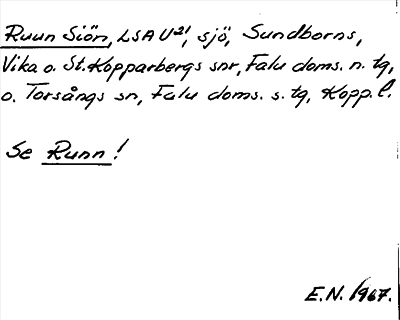 Ruun Siön, LSA U²¹, sjö, Sundborns,
Vika o. St. Kopparbergs snr, Falu doms. n. tg,
o. Torsångs sn, Falu doms. s. tg, Kopp. l.
Se Runn!
E.N. 1967.